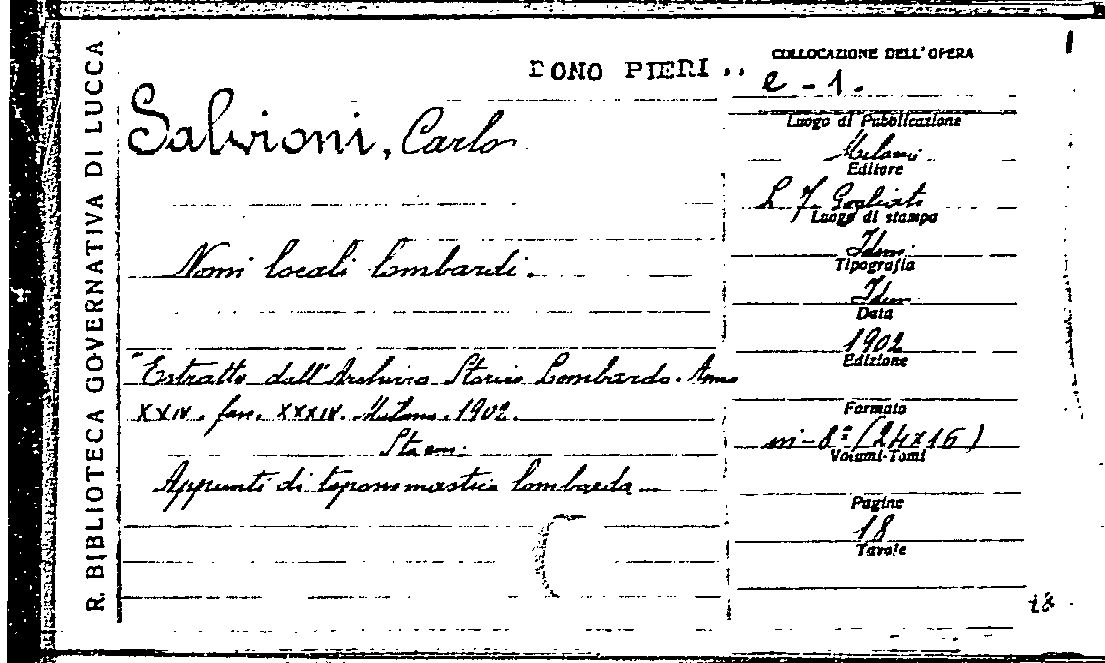 R. BIBLIOTECA GOVERNATIVA DI LUCCA
DONO PIERI ..
Salvioni, Carlo
Nomi locali lombardi.
"Estratto dall'Archivio Storico Lombardo. Anno
XXIV. fas. XXXIV. Milano. 1902.
Appunti di toponomastica lombarda
COLLOCAZIONE DELL'OPERA
e - 1.
Luogo di Pubblicazione
Milano
Editore
L. F. Cogliati
Luogo di stampa
Idem
Tipografia
Idem
Data
1902
Edizione
Formato
in-8° (24x16)
Volumi-Tomi
Pagine
18
Tavole
18